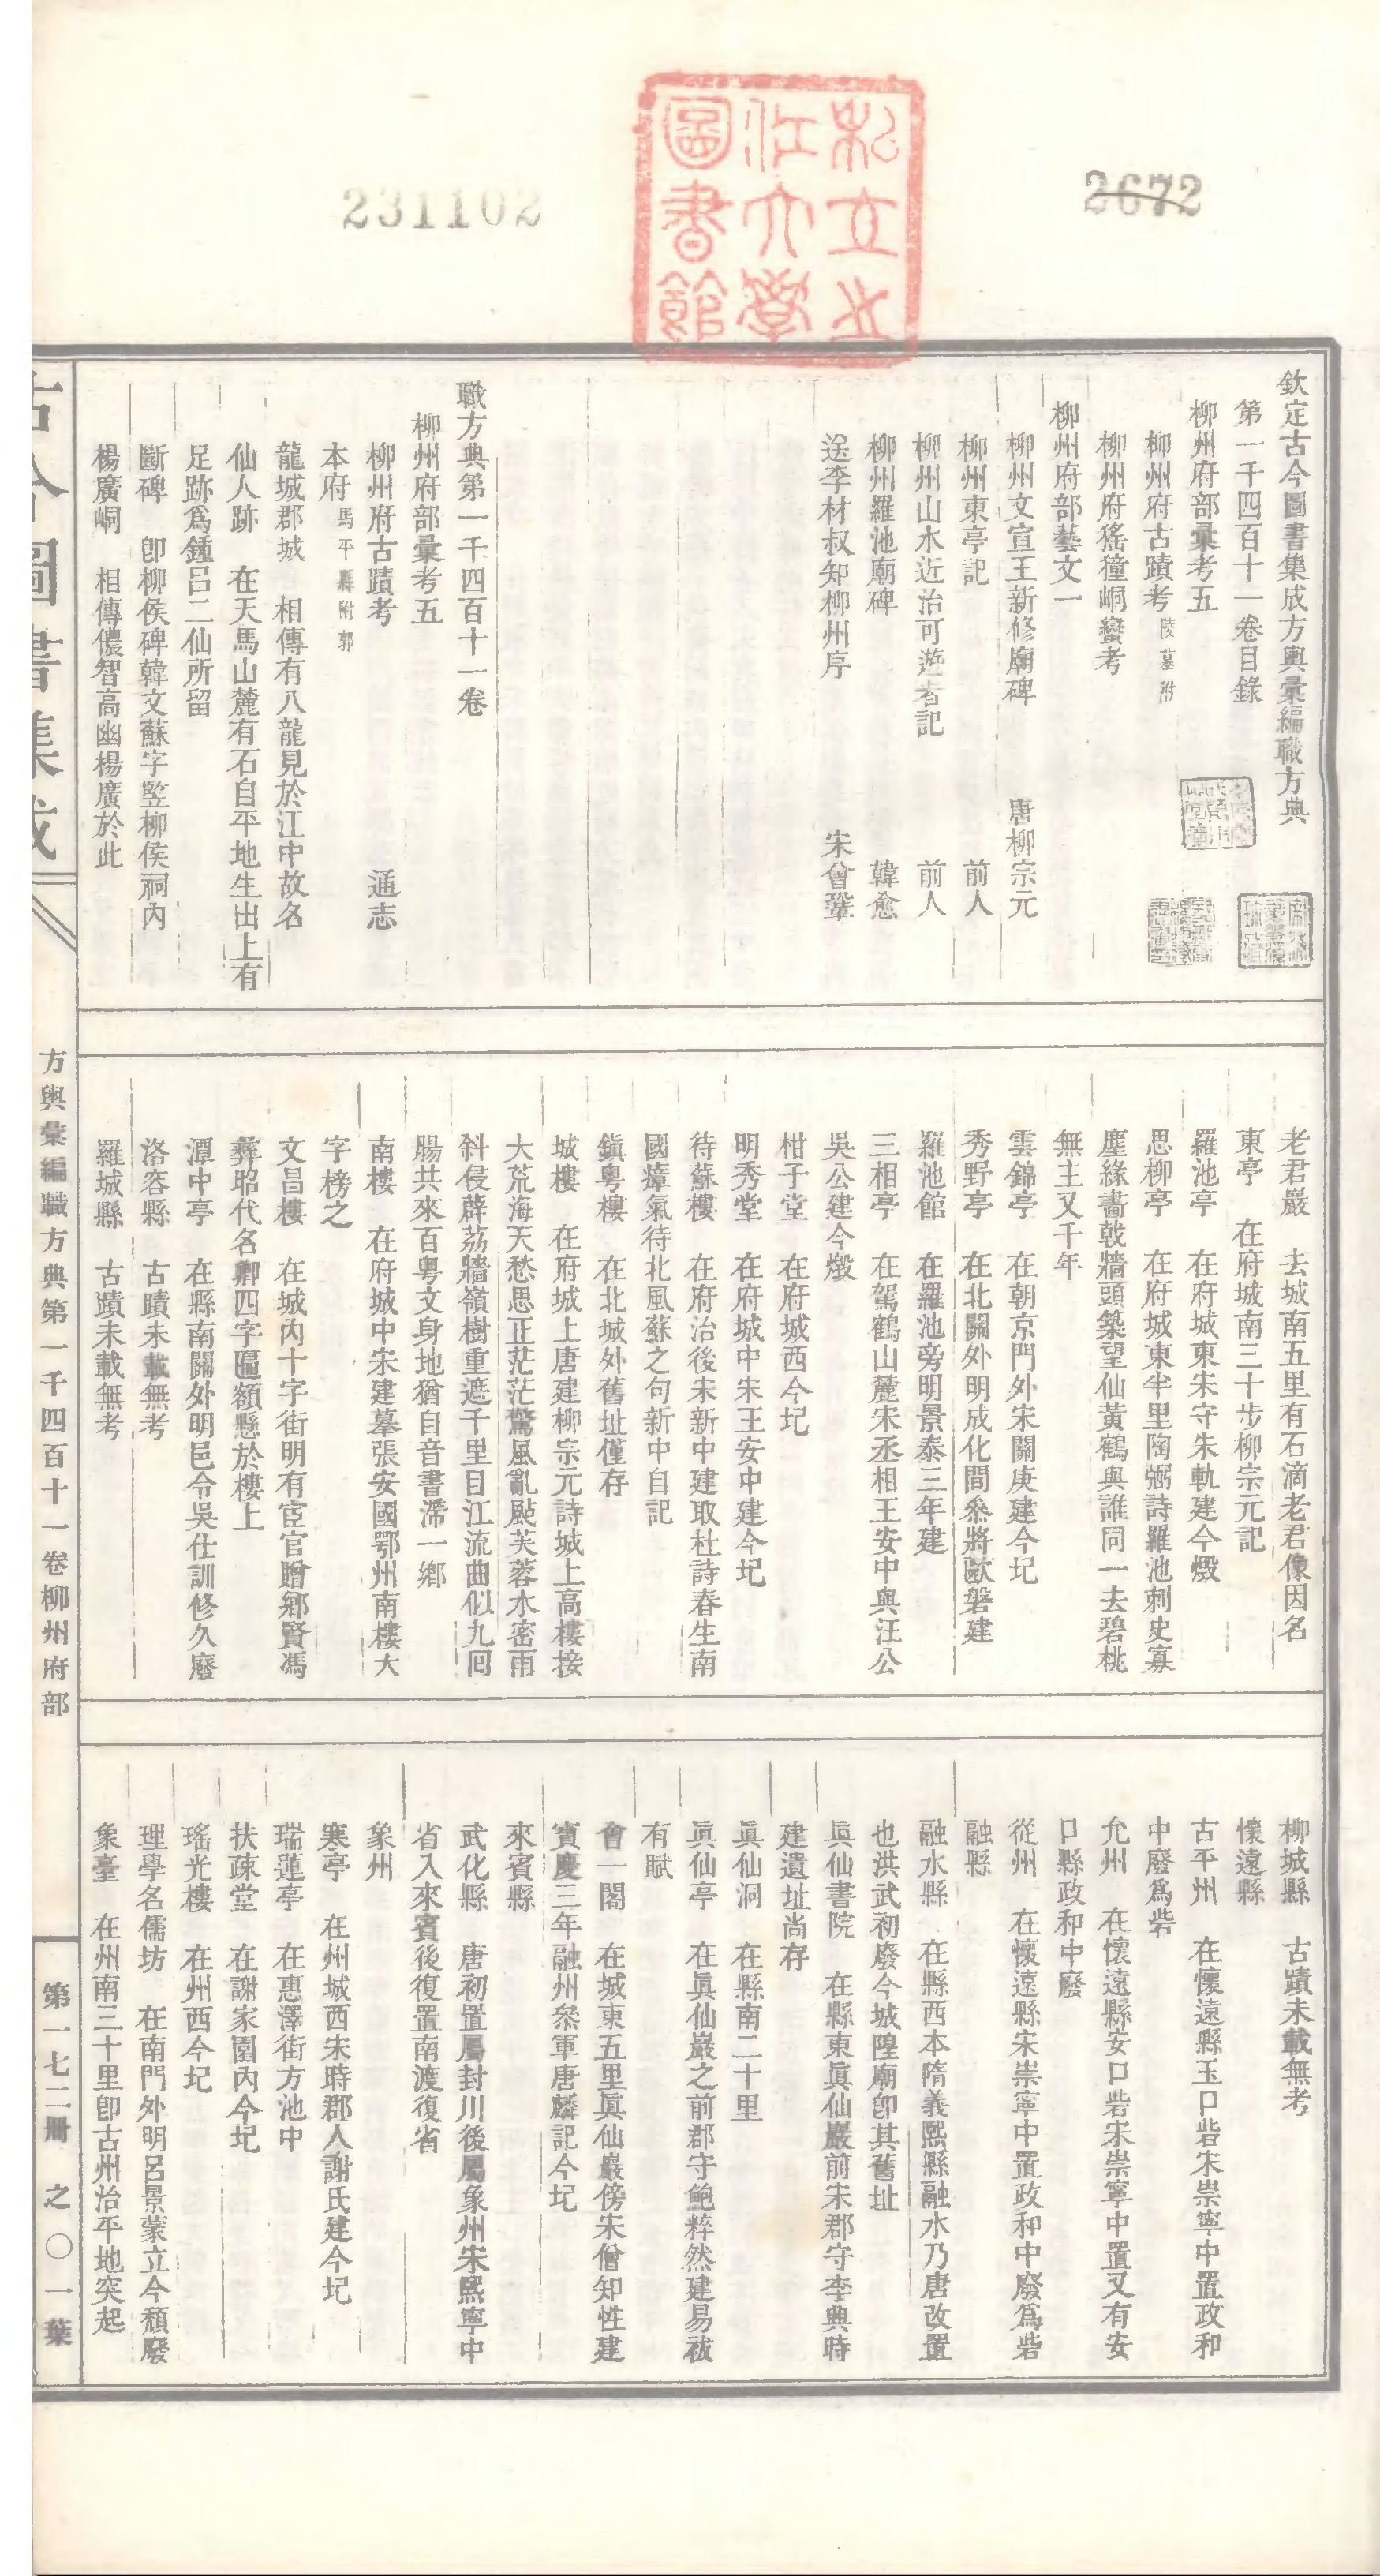 231102
2672
私立之江大學圖書館
欽定古今圖書集成方輿彙編職方典
第一千四百十一卷目錄
柳州府部彙考五
柳州府古蹟考 陵墓附
柳州府猺獞峒蠻考
柳州府部藝文一
柳州文宣王新修廟碑 唐柳宗元
柳州東亭記 前人
柳州山水近治可遊者記 前人
柳州羅池廟碑 韓愈
送李材叔知柳州序 宋曾鞏
職方典第一千四百十一卷
柳州府部彙考五
柳州府古蹟考 通志
本府 馬平縣附郭
龍城郡城 相傳有八龍見於江中故名
仙人跡 在天馬山麓有石自平地生出上有
足跡爲鍾呂二仙所留
斷碑 卽柳侯碑韓文蘇字竪柳侯祠內
楊廣峒 相傳儂智高幽楊廣於此
老君巖 去城南五里有石滴老君像因名
東亭 在府城南三十步柳宗元記
羅池亭 在府城東宋守朱軌建今燬
思柳亭 在府城東半里陶弼詩羅池刺史寡
塵緣畵戟牆頭築望仙黃鶴與誰同一去碧桃
無主又千年
雲錦亭 在朝京門外宋關庚建今圮
秀野亭 在北關外明成化間叅將歐磐建
羅池館 在羅池旁明景泰三年建
三相亭 在駕鶴山麓宋丞相王安中與汪公
吳公建今燬
柑子堂 在府城西今圮
明秀堂 在府城中宋王安中建今圮
待蘇樓 在府治後宋新中建取杜詩春生南
國瘴氣待北風蘇之句新中自記
鎭粵樓 在北城外舊址僅存
城樓 在府城上唐建柳宗元詩城上高樓接
大荒海天愁思正茫茫驚風亂颭芙蓉水密雨
斜侵薜荔牆嶺樹重遮千里目江流曲似九囘
腸共來百粤文身地猶自音書滯一鄕
南樓 在府城中宋建摹張安國鄂州南樓大
字榜之
文昌樓 在城內十字街明有宦官贈鄕賢馮
彝昭代名卿四字匾額懸於樓上
潭中亭 在縣南關外明邑令吳仕訓修久廢
洛容縣 古蹟未載無考
羅城縣 古蹟未載無考
柳城縣 古蹟未載無考
懷遠縣
古平州 在懷遠縣玉口砦宋崇寧中置政和
中廢爲砦
允州 在懷遠縣安口砦宋崇寧中置又有安
口縣政和中廢
從州 在懷遠縣宋崇寧中置政和中廢爲砦
融縣
融水縣 在縣西本隋義熙縣融水乃唐改置
也洪武初廢今城隍廟卽其舊址
眞仙書院 在縣東眞仙巖前宋郡守李典時
建遺址尚存
眞仙洞 在縣南二十里
眞仙亭 在眞仙巖之前郡守鮑粹然建易祓
有賦
會一閣 在城東五里眞仙巖傍宋僧知性建
寶慶三年融州叅軍唐麟記今圮
來賓縣
武化縣 唐初置屬封川後屬象州宋熙寧中
省入來賓後復置南渡復省
象州
寒亭 在州城西宋時郡人謝氏建今圮
瑞蓮亭 在惠澤街方池中
扶疎堂 在謝家園內今圮
瑤光樓 在州西今圮
理學名儒坊 在南門外明呂景蒙立今頹廢
象臺 在州南三十里卽古州治平地突起
古今圖書集成
方輿彙編職方典第一千四百十一卷柳州府部
第一七二冊 之〇一葉